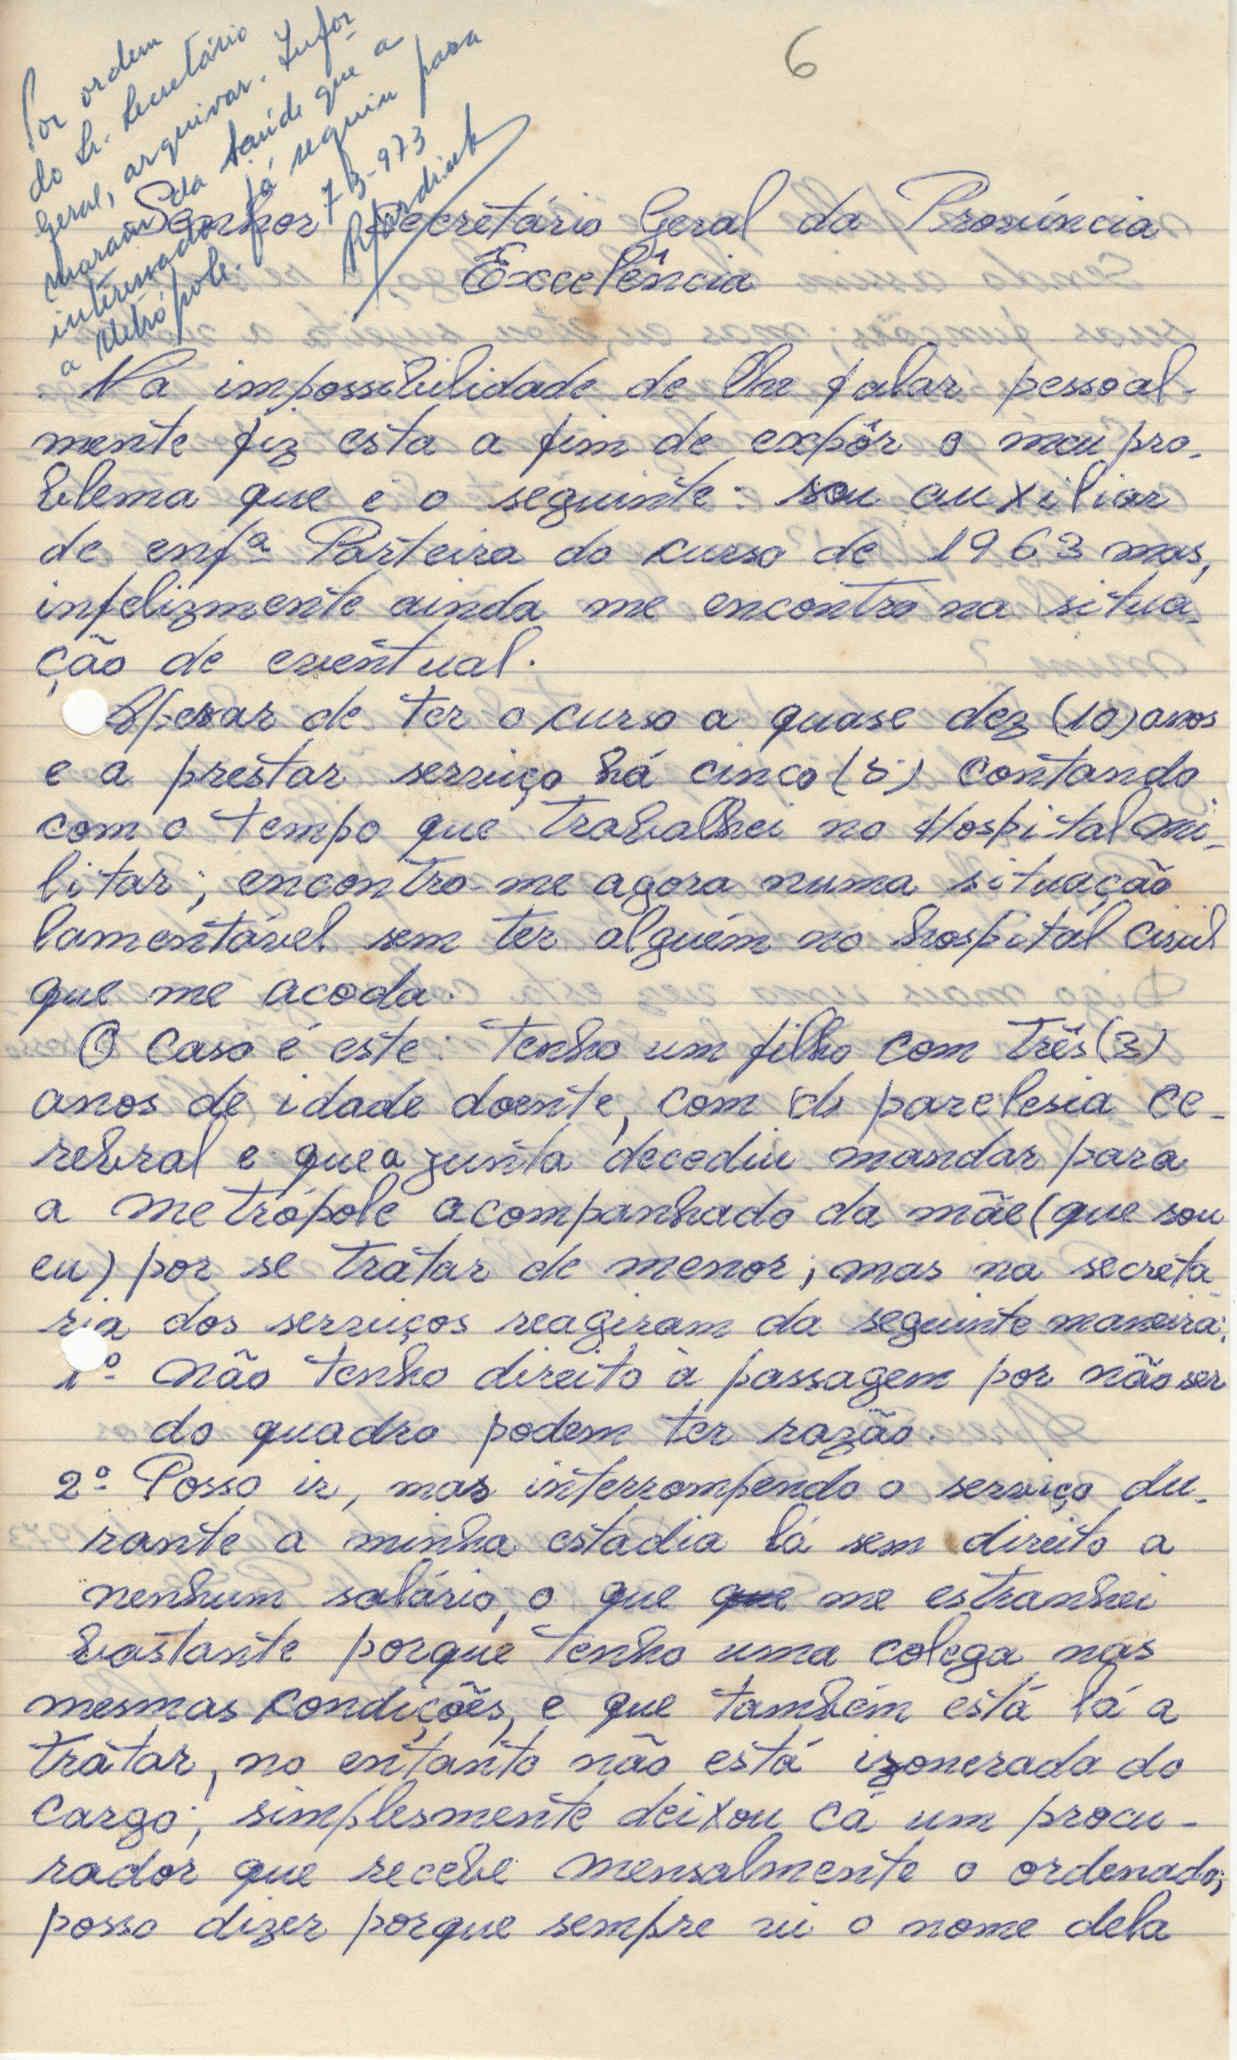 6
Por ordem
do Sr. Secretário
Geral, arquivar. Infor-
maram da Saúde que a
interessada já seguiu para
a Metrópole.
7-3-973
Senhor Secretário Geral da Província
Excelência
Na impossibilidade de lhe falar pessoal-
mente fiz esta a fim de expôr o meu pro-
blema que é o seguinte: sou auxiliar
de enfª Parteira do curso de 1963 mas,
infelizmente ainda me encontro na situa-
ção de eventual.
Apesar de ter o curso a quase dez (10) anos
e a prestar serviço há cinco (5) contando
com o tempo que trabalhei no Hospital Mi-
litar; encontro-me agora numa situação
lamentável sem ter alguém no hospital civil
que me acoda.
O caso é este: tenho um filho com três (3)
anos de idade doente, com parelesia ce-
rebral e que a junta decediu mandar para
a Metrópole acompanhado da mãe (que sou
eu) por se tratar de menor; mas na secreta-
ria dos serviços reagiram da seguinte maneira:
1º Não tenho direito à passagem por não ser
do quadro podem ter razão.
2º Posso ir, mas interrompendo o serviço du-
rante a minha estadia lá sem direito a
nenhum salário, o que que me estranhei
bastante porque tenho uma colega nas
mesmas condições, e que também está lá a
tratar, no entanto não está izonerada do
cargo; simplesmente deixou cá um procu-
rador que recebe mensalmente o ordenado;
posso dizer porque sempre vi o nome dela